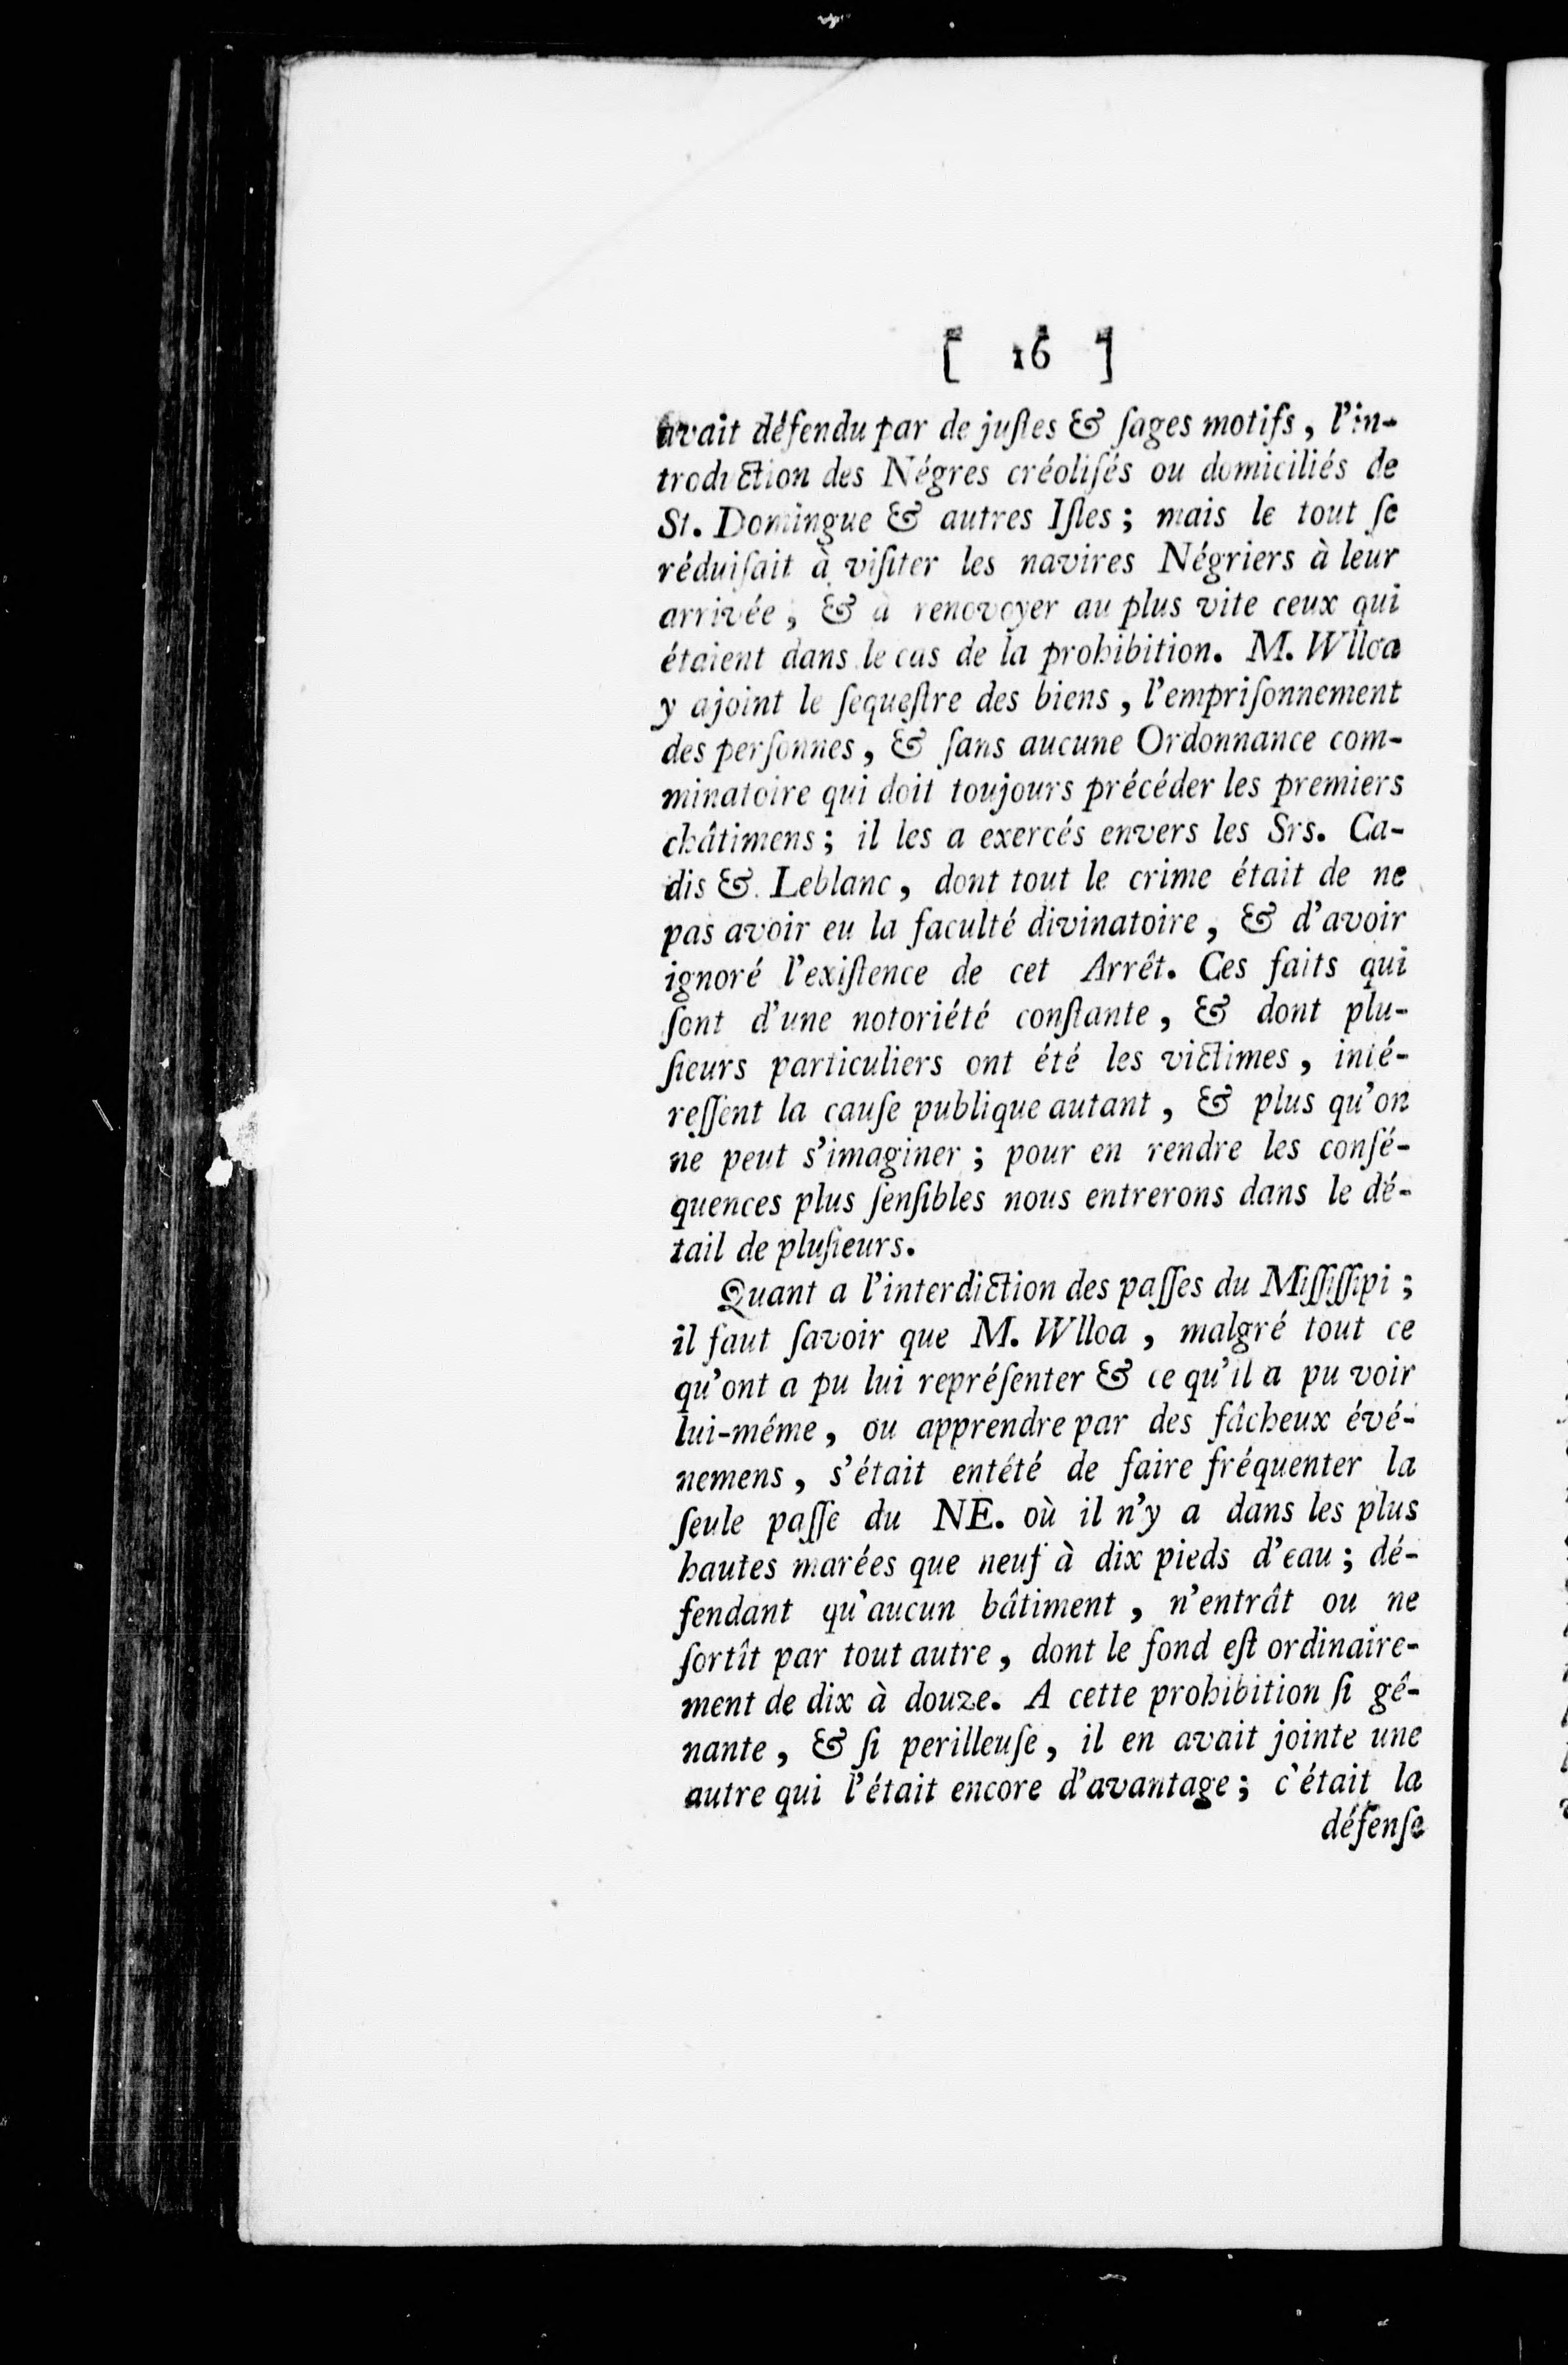 [ 16 ]
avait défendu par de juſtes & ſages motifs, l'in-
troduction des Négres créoliſés ou domiciliés de
St. Domingue & autres Iſles; mais le tout ſe
réduiſait à viſiter les navires Négriers à leur
arrivée, & à renovoyer au plus vite ceux qui
étaient dans le cas de la prohibition. M. Wlloa
y ajoint le ſequeſtre des biens, l'empriſonnement
des perſonnes, & ſans aucune Ordonnance com-
minatoire qui doit toujours précéder les premiers
châtimens; il les a exercés envers les Srs. Ca-
dis & Leblanc, dont tout le crime était de ne
pas avoir eu la faculté divinatoire, & d'avoir
ignoré l'exiſtence de cet Arrêt. Ces faits qui
ſont d'une notoriété conſtante, & dont plu-
ſieurs particuliers ont été les victimes, inté-
reſſent la cauſe publique autant, & plus qu'on
ne peut s'imaginer; pour en rendre les conſé-
quences plus ſenſibles nous entrerons dans le dé-
tail de pluſieurs.
Quant a l'interdiction des paſſes du Miſſiſſipi;
il faut ſavoir que M. Wlloa, malgré tout ce
qu'ont a pu lui repréſenter & ce qu'il a pu voir
lui-méme, ou apprendre par des fâcheux évé-
nemens, s'était entété de faire fréquenter la
ſeule paſſe du NE. où il n'y a dans les plus
hautes marées que neuf à dix pieds d'eau; dé-
fendant qu'aucun bâtiment, n'entrât ou ne
ſortît par tout autre, dont le fond eſt ordinaire-
ment de dix à douze. A cette prohibition ſi gê-
nante, & ſi perilleuſe, il en avait jointe une
autre qui l'était encore d'avantage; c'était la
défenſe